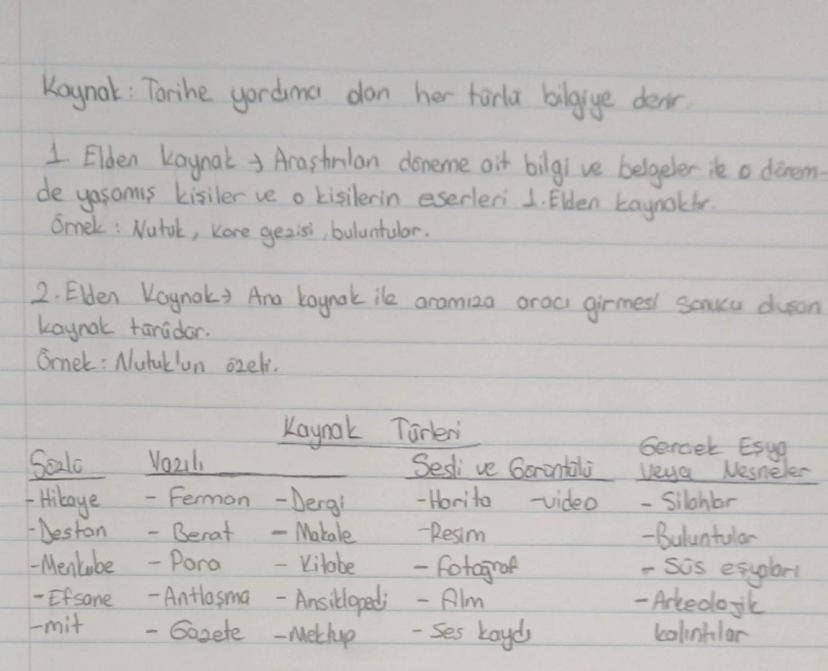 Kaynak: Tarihe yardımcı olan her türlü bilgiye denir.
1. Elden kaynak → Araştırılan döneme ait bilgi ve belgeler ile o dönem-
de yaşamış kişiler ve o kişilerin eserleri 1. Elden kaynaktır.
Örnek: Nutuk, kare gezisi, buluntular.
2. Elden Kaynak → Ana kaynak ile aramıza aracı girmesi sonucu duşan
kaynak türüdür.
Örnek: Nutuk'un özeti.
Kaynak Türleri
Sözlü Yazılı Sesli ve Görüntülü Gerçek Eşya
veya Nesneler
-Hikaye - Ferman -Dergi -Harita -video - Silahlar
-Destan - Berat - Makale -Resim -Buluntular
-Menkıbe - Para - Kitabe - Fotoğraf - Süs eşyaları
-Efsane - Antlaşma - Ansiklopedi - Film -Arkeolojik
-mit - Gazete -Mektup - Ses kaydı kalıntılar